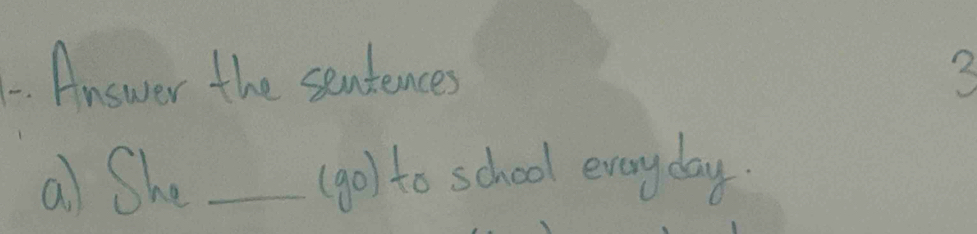 1-. Answer the sentences 3
a) She ____ (go) to school everyday.